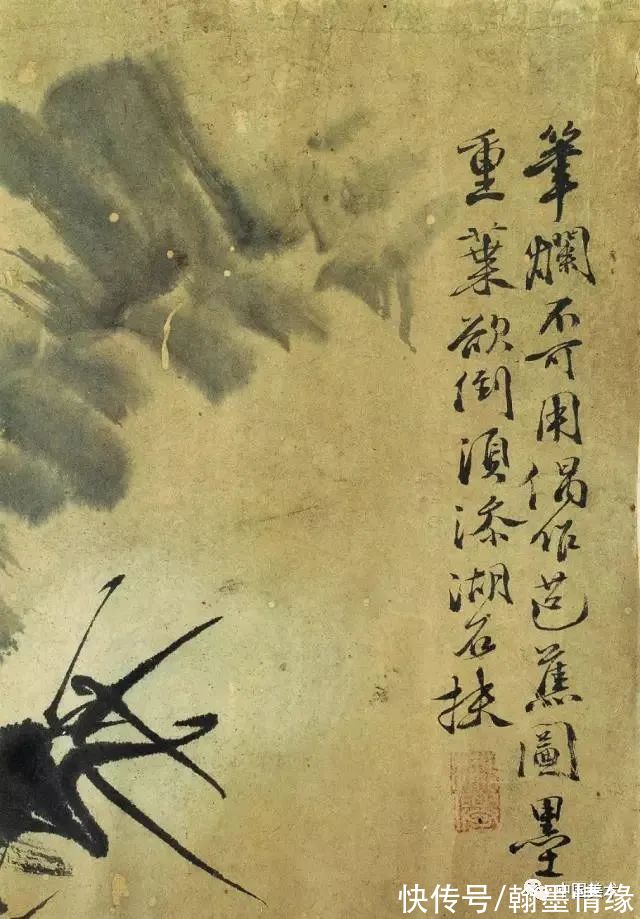 筆爛不可用偶作芭蕉圖墨
重葉欲倒須添湖石扶
中国美术
快传号/翰墨情缘